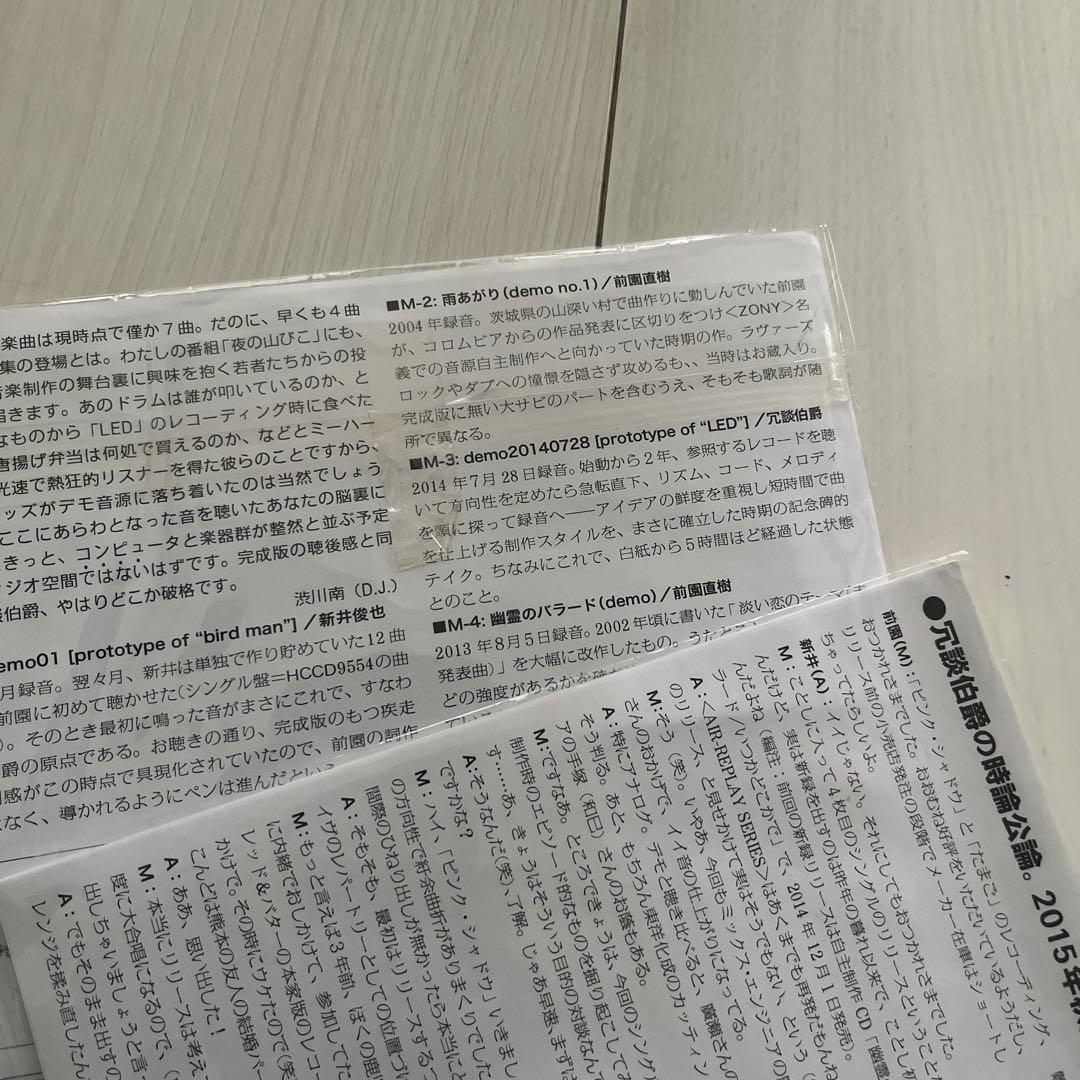 楽曲は現時点で僅か7曲。だのに、早くも4曲
集の登場とは。わたしの番組「夜の山びこ」にも、
音楽制作の舞台裏に興味を抱く若者たちからの投
届きます。あのドラムは誰が叩いているのか、と
なものから「LED」のレコーディング時に食べた
唐揚げ弁当は何処で買えるのか、などとミーハー
光速で熱狂的リスナーを得た彼らのことですから、
ッズがデモ音源に落ち着いたのは当然でしょう
ここにあらわとなった音を聴いたあなたの脳裏に
きっと、コンピュータと楽器群が整然と並ぶ予定
ジオ空間ではないはずです。完成版の聴後感と同
談伯爵、やはりどこか破格です。
渋川南(D.J.)
emo01 [prototype of “bird man”] /新井俊也
月録音。翌々月、新井は単独で作り貯めていた12曲
前園に初めて聴かせた(シングル盤=HCCD9554の曲
)。そのとき最初に鳴った音がまさにこれで、すなわ
爵の原点である。お聴きの通り、完成版のもつ疾走
感がこの時点で具現化されていたので、前園の詞作
なく、導かれるようにペンは進んだという
■M-2: 雨あがり(demo no.1)/前園直樹
2004年録音。茨城県の山深い村で曲作りに勤しんでいた前園
が、コロムビアからの作品発表に区切りをつけ<ZONY>名
義での音源自主制作へと向かっていた時期の作。ラヴァーズ
ロックやダブへの憧憬を隠さず攻めるも、、当時はお蔵入り。
完成版に無い大サビのパートを含むうえ、そもそも歌詞が随
所で異なる。
■M-3: demo20140728 [prototype of “LED”] /冗談伯爵
2014年7月28日録音。始動から2年、参照するレコードを聴
いて方向性を定めたら急転直下、リズム、コード、メロディ
を順に探って録音へ――アイデアの鮮度を重視し短時間で曲
を仕上げる制作スタイルを、まさに確立した時期の記念碑的
テイク。ちなみにこれで、白紙から5時間ほど経過した状態
とのこと。
■M-4: 幽霊のバラード(demo)/前園直樹
2013年8月5日録音。2002年頃に書いた「淡い恋のテーマ
発表曲)」を大幅に改作したもの。うたと
どの強度があるかを
●冗談伯爵の時論公論。2015年
前園(M):「ピンク・シャドウ」と「たまご」のレコーディング、
おつかれさまでした。おおむね好評をいただいているようだし、
リリース前の小売店発注の段階でメーカー在庫はショートし
ちゃってたらしいよ。
新井(A):イイじゃない。それにしてもおつかれさまでした。
M:ことしに入って4枚目のシングルのリリースということ
んだけど、実は新録を出すのは昨年の暮れ以来で、ことし初
んだよね(編注:前回の新録リリースは自主制作CD「幽霊
ラード/いつかどこかで」で、2014年12月1日発売)。
A:<AIR-REPLAY SERIES>はあくまでも再発だもんね
のリリース、と見せかけて実はそうでもない、という(
M:そう(笑)。いやあ、今回もミックス・エンジニアの
さんのおかげで、イイ音の仕上がりになってる。
A:特にアナログ。デモと聴き比べると、廣瀬さんの
そう判る。あと、もちろん東洋化成のカッティン
アの手塚(和巳)さんのお蔭もある。
M:ですなあ。ところできょうは、今回のシング
制作時のエピソード的なものを掘り起こして
す……あ、きょうはそういう目的の対談なん
A:そうなんだ(笑)、了解。じゃあ早速、まずは
ですかな?
M:ハイ、「ピンク・シャドウ」いきまし
の方向性で紆余曲折がありまくりでした
間際のひねり出しが無かったら本当にと
A:そもそも、最初はリリースするつ
イヴのレパートリーとしての位置づけ
M:もっと言えば3年前、ぼくの鹿
に内緒でおしかけて、参加してた
レッド&バターの本家版のレコー
かけて。その時にウケたので(笑
こんどは熊本の友人の結婚パー
A:ああ、思い出した!
M:本当にリリースは考えて
度に大合唱になるので、
出しちゃいましょうと言っ
A:でもそのまま出すの
レンジを揉み直したん